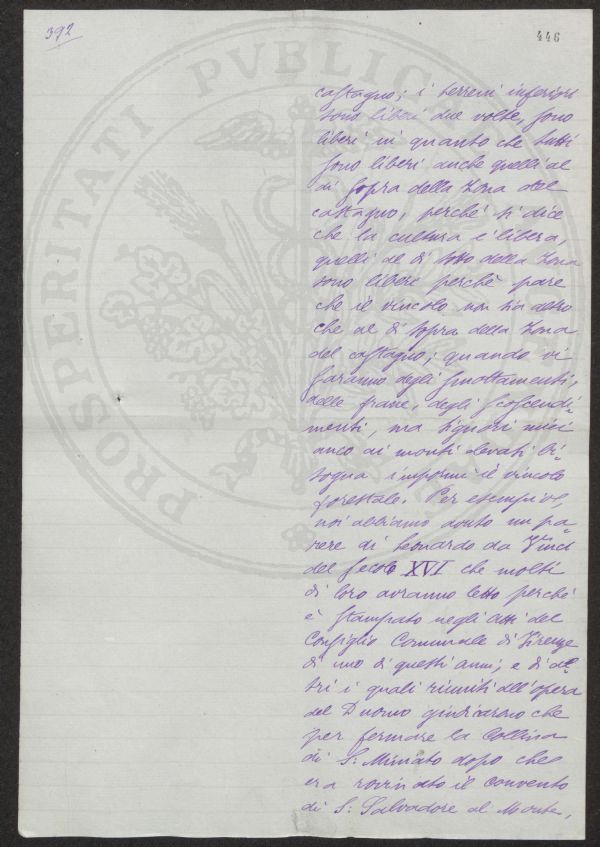 392
446
PROSPERITATI PVBLICAE
castagno; i terreni inferiori
sono liberi due volte, sono
liberi in quanto che tutti
sono liberi anche quelli al
di sopra della zona del
castagno, perché si dice
che la cultura è libera,
quelli al di sotto della zona
sono liberi perchè pare
che il vincolo non sia altro
che al di sopra della zona
del castagno; quando vi
saranno degli smottamenti,
delle frane, degli scoscendi-
menti, ma signori miei
anco ai monti elevati bi-
sogna imporvi il vincolo
forestale. Per esempio,
noi abbiamo avuto un pa-
rere di Leonardo da Vinci
del secolo XVI che molti
di loro avranno letto perché
è stampato negli atti del
Consiglio Comunale di Firenze
di uno di questi anni; e di al-
tri i quali riuniti all'opera
del Duomo giudicarono che
per fermare la collina
di S. Miniato dopo che
era rovinato il convento
di S. Salvadore al Monte,